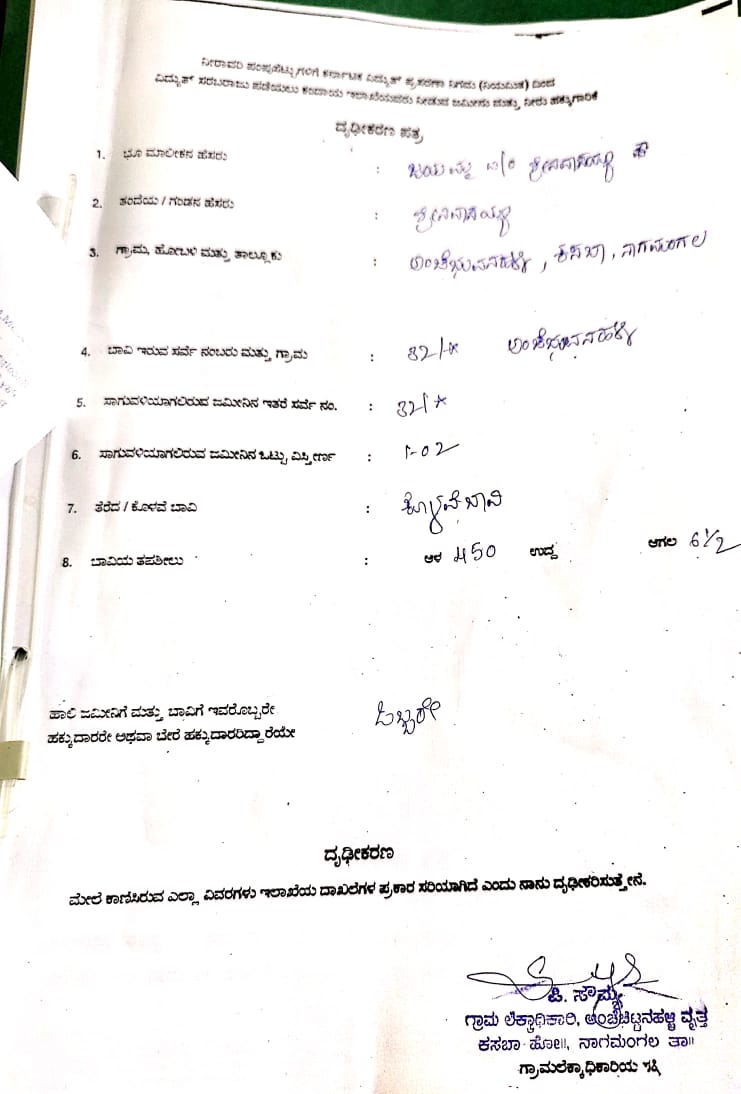 ನೀರಾವರಿ ಪಂಪುಸೆಟ್ಟುಗಳಿಗೆ ಕರ್ನಾಟಕ ವಿದ್ಯುತ್ ಪ್ರಸರಣಾ ನಿಗಮ (ನಿಯಮಿತ) ದಿಂದ
ವಿದ್ಯುತ್ ಸರಬರಾಜು ಪಡೆಯಲು ಕಂದಾಯ ಇಲಾಖೆಯವರು ನೀಡುವ ಜಮೀನು ಮತ್ತು ನೀರು ಹಕ್ಕುಗಾರಿಕೆ
ದೃಢೀಕರಣ ಪತ್ರ
1. ಭೂ ಮಾಲೀಕನ ಹೆಸರು : ಜಯಮ್ಮ W/o ಶ್ರೀನಿವಾಸಯ್ಯ
2. ತಂದೆಯ / ಗಂಡನ ಹೆಸರು : ಶ್ರೀನಿವಾಸಯ್ಯ
3. ಗ್ರಾಮ, ಹೋಬಳಿ ಮತ್ತು ತಾಲ್ಲೂಕು : ಅಂಚೆಭುವನಹಳ್ಳಿ, ಕಸಬಾ, ನಾಗಮಂಗಲ
4. ಬಾವಿ ಇರುವ ಸರ್ವೆ ನಂಬರು ಮತ್ತು ಗ್ರಾಮ : 32/* ಅಂಚೆಭುವನಹಳ್ಳಿ
5. ಸಾಗುವಳಿಯಾಗಲಿರುವ ಜಮೀನಿನ ಇತರೆ ಸರ್ವೆ ನಂ. : 32/*
6. ಸಾಗುವಳಿಯಾಗಲಿರುವ ಜಮೀನಿನ ಒಟ್ಟು ವಿಸ್ತೀರ್ಣ : 1-02
7. ತೆರೆದ / ಕೊಳವೆ ಬಾವಿ : ಕೊಳವೆ ಬಾವಿ
8. ಬಾವಿಯ ತಪಶೀಲು : ಆಳ 450 ಉದ್ದ ಅಗಲ 6 1/2
ಹಾಲಿ ಜಮೀನಿಗೆ ಮತ್ತು ಬಾವಿಗೆ ಇವರೊಬ್ಬರೇ ಒಬ್ಬರೇ
ಹಕ್ಕುದಾರರೇ ಅಥವಾ ಬೇರೆ ಹಕ್ಕುದಾರರಿದ್ದಾರೆಯೇ
ದೃಢೀಕರಣ
ಮೇಲೆ ಕಾಣಿಸಿರುವ ಎಲ್ಲಾ ವಿವರಗಳು ಇಲಾಖೆಯ ದಾಖಲೆಗಳ ಪ್ರಕಾರ ಸರಿಯಾಗಿದೆ ಎಂದು ನಾನು ದೃಢೀಕರಿಸುತ್ತೇನೆ.
ಪಿ. ಸೌಮ್ಯ
ಗ್ರಾಮ ಲೆಕ್ಕಾಧಿಕಾರಿ, ಅಂಚೆಚಿಟ್ಟನಹಳ್ಳಿ ವೃತ್ತ
ಕಸಬಾ ಹೋ॥, ನಾಗಮಂಗಲ ತಾ॥
ಗ್ರಾಮಲೆಕ್ಕಾಧಿಕಾರಿಯ ಸಹಿ